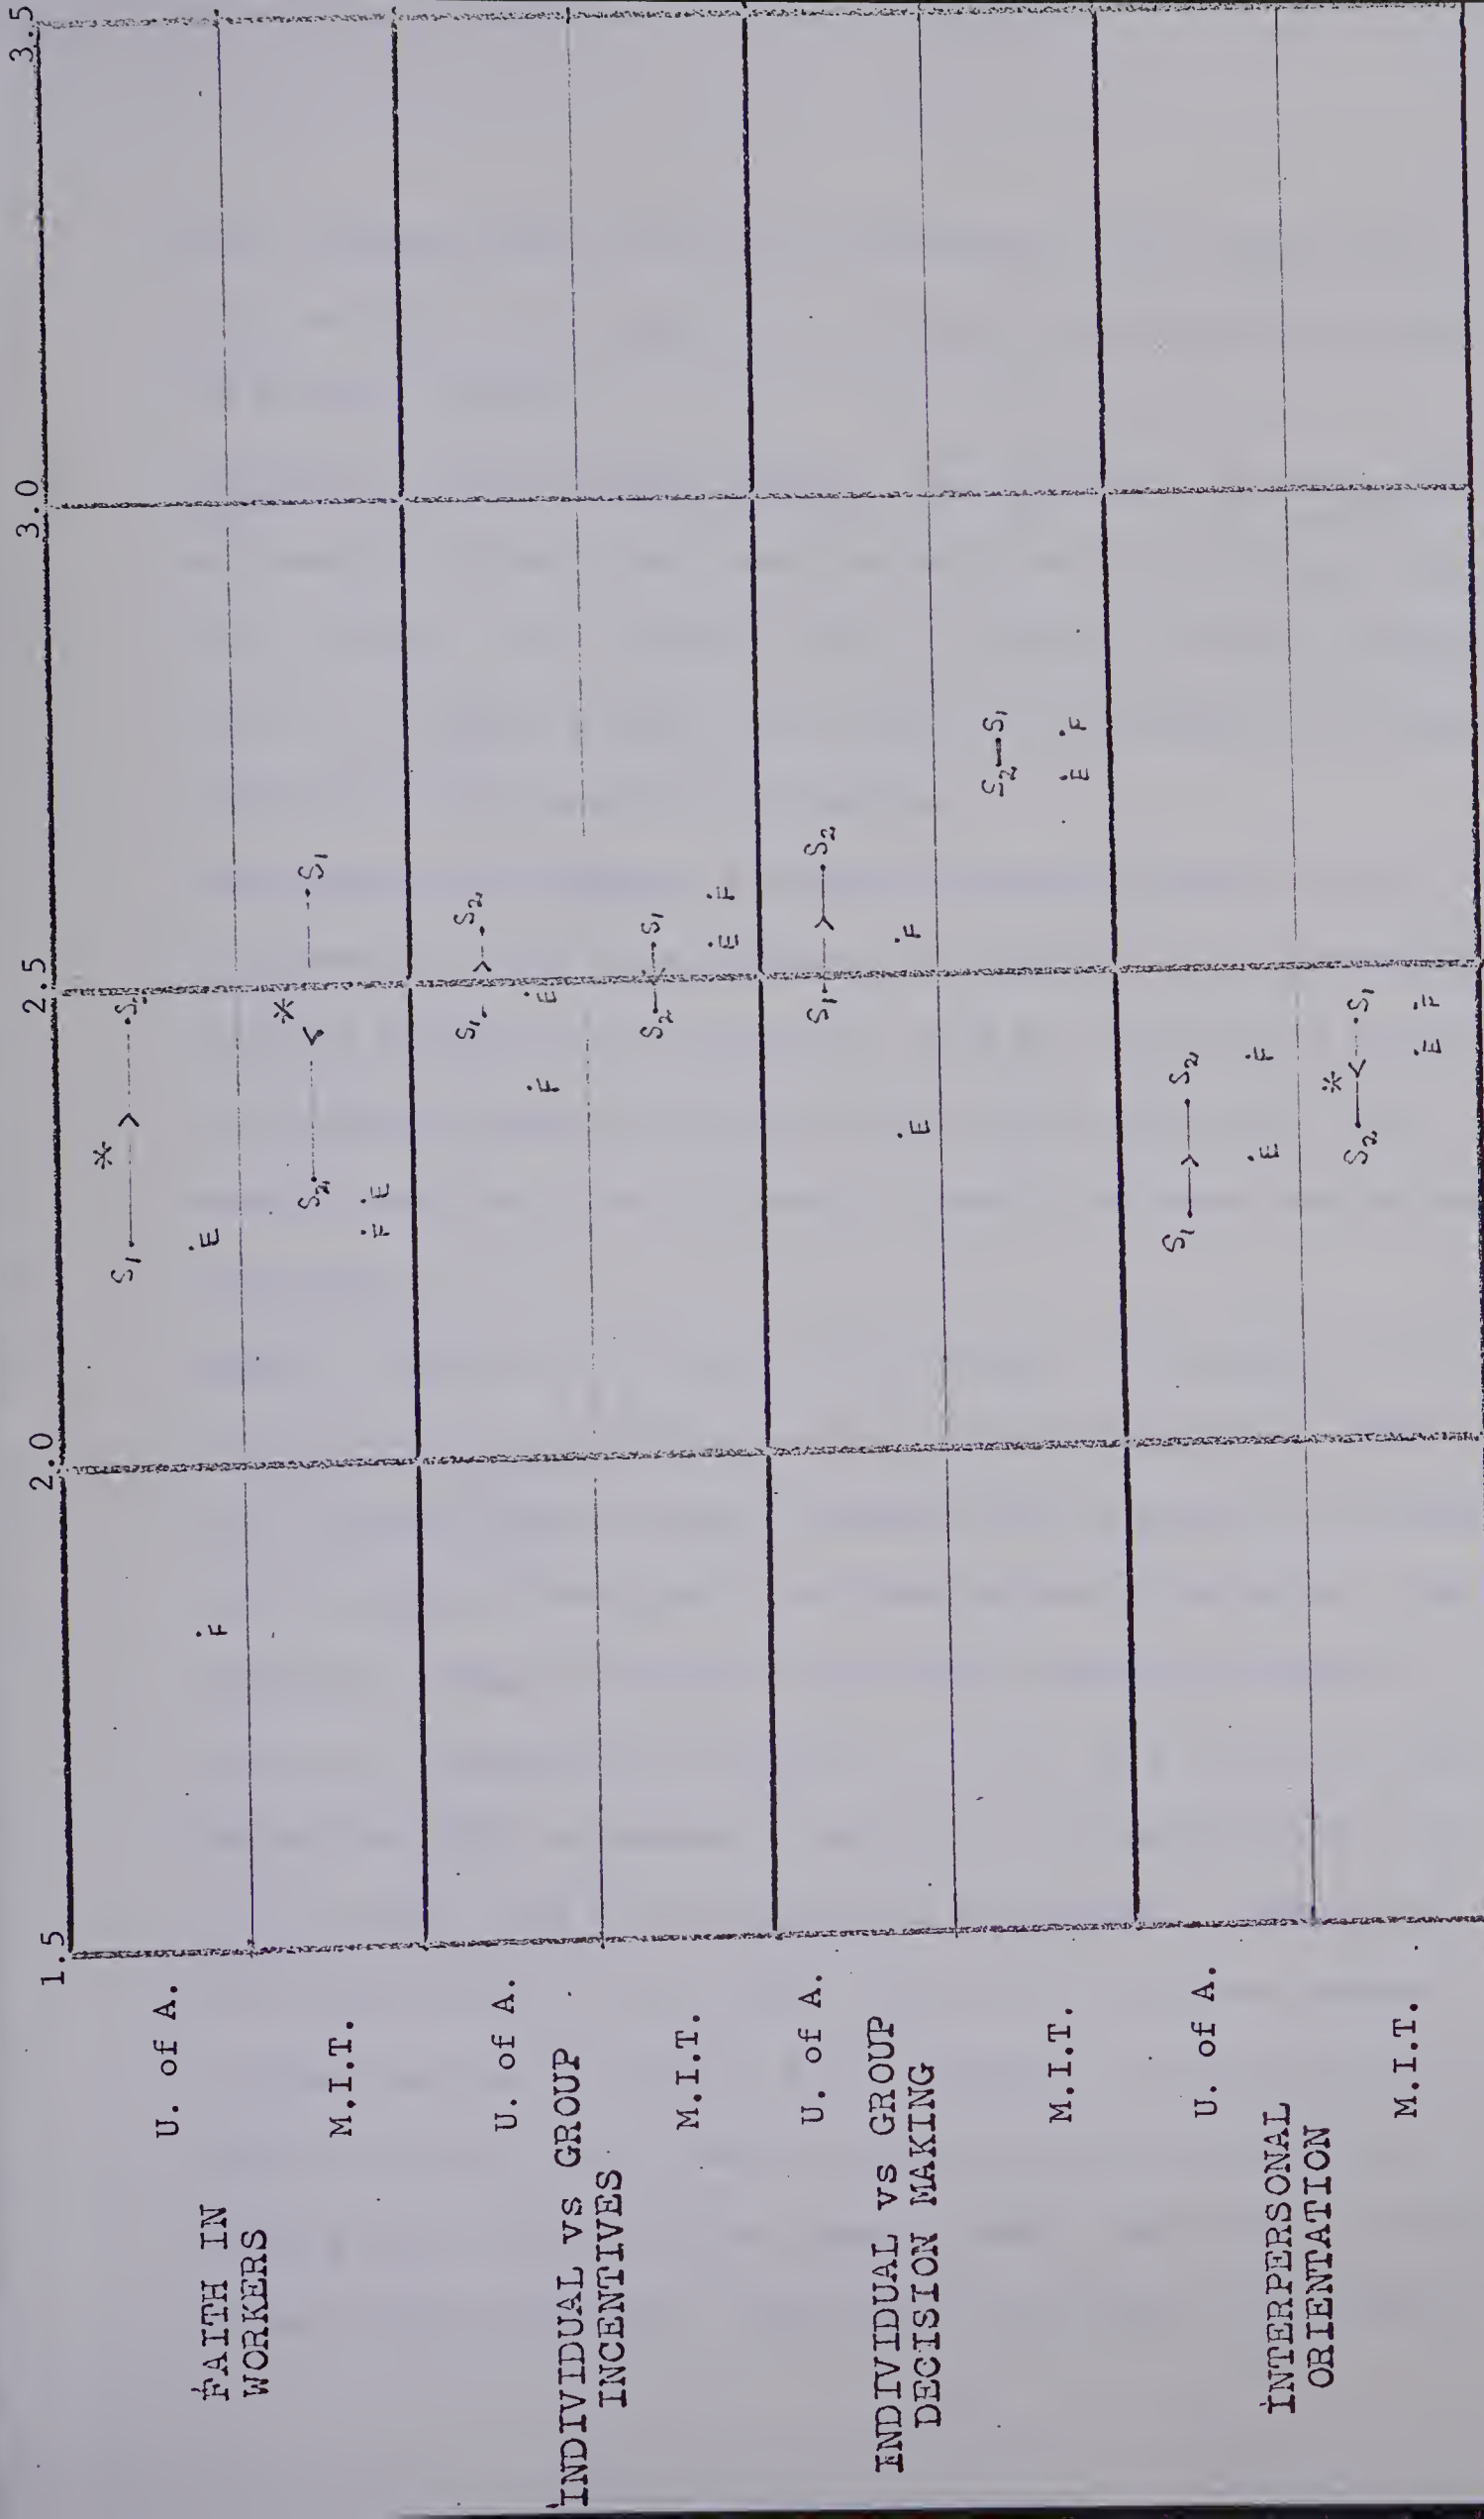 1.5 2.0 2.5 3.0 3.5
FAITH IN
WORKERS
U. of A.
S1 * > S2
F E
M.I.T.
S2 < * S1
F E
INDIVIDUAL vs GROUP
INCENTIVES
U. of A.
S1 > S2
F E
M.I.T.
S2 < S1
E F
INDIVIDUAL vs GROUP
DECISION MAKING
U. of A.
S1 > S2
E F
M.I.T.
S2 S1
E F
INTERPERSONAL
ORIENTATION
U. of A.
S1 > S2
E F
M.I.T.
S2 * < S1
E F